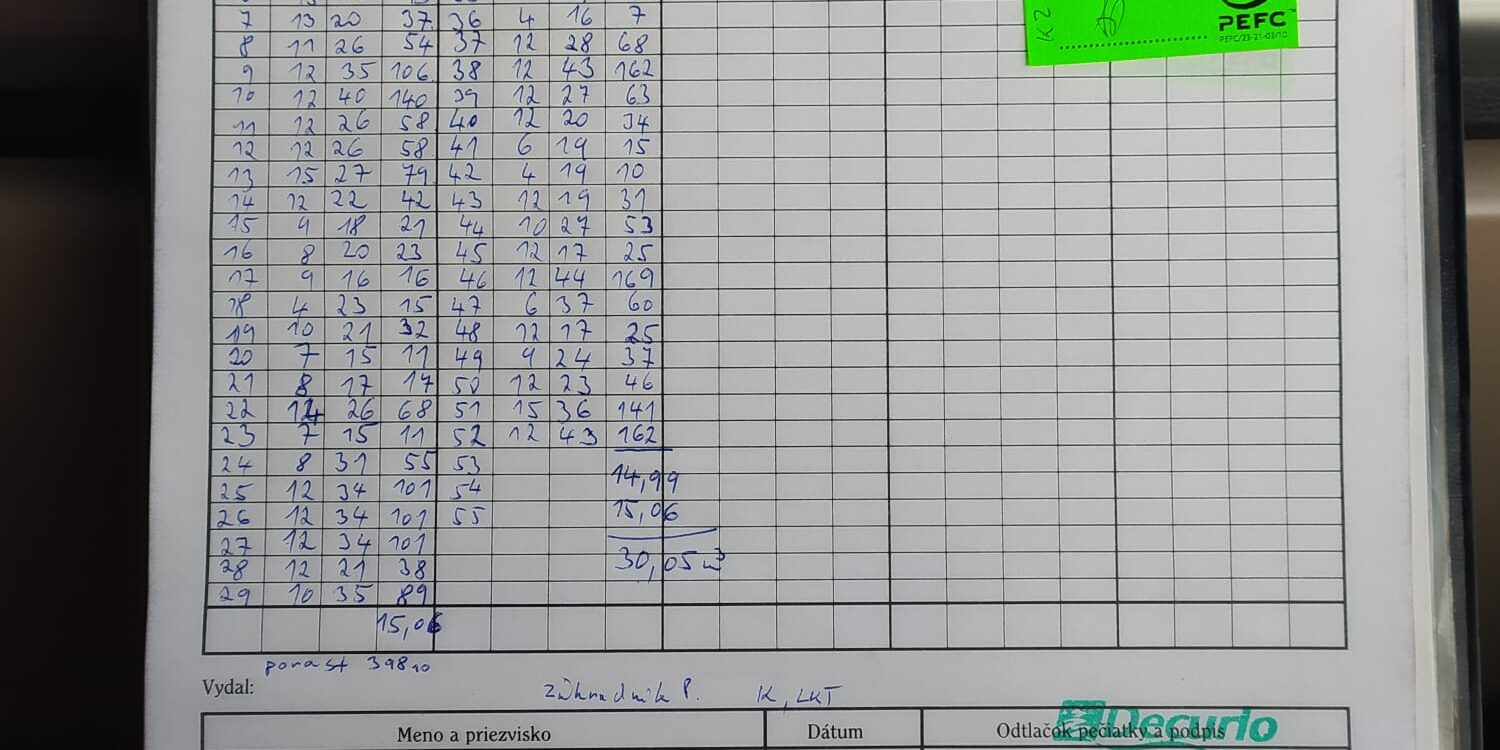 7 13 20 37 36 4 16 7
8 11 26 54 37 12 28 68
9 12 35 106 38 12 43 162
10 12 40 140 39 12 27 63
11 12 26 58 40 12 20 34
12 12 26 58 41 6 19 15
13 15 27 79 42 4 19 10
14 12 22 42 43 12 19 31
15 9 18 21 44 10 27 53
16 8 20 23 45 12 17 25
17 9 16 16 46 12 44 169
18 4 23 15 47 6 37 60
19 10 21 32 48 12 17 25
20 7 15 11 49 9 24 37
21 8 17 17 50 12 23 46
22 14 26 68 51 15 36 141
23 7 15 11 52 12 43 162
24 8 31 55 53
25 12 34 101 54 14,99
26 12 34 101 55 15,06
27 12 34 101
28 12 21 38 30,05 m³
29 10 35 89
15,06
porast 398 10
Vydal: Záhradník P. K, LKT
Meno a priezvisko Dátum Odtlačok pečiatky a podpis
Decurio
K2
PEFC™
PEFC/23-21-03/10